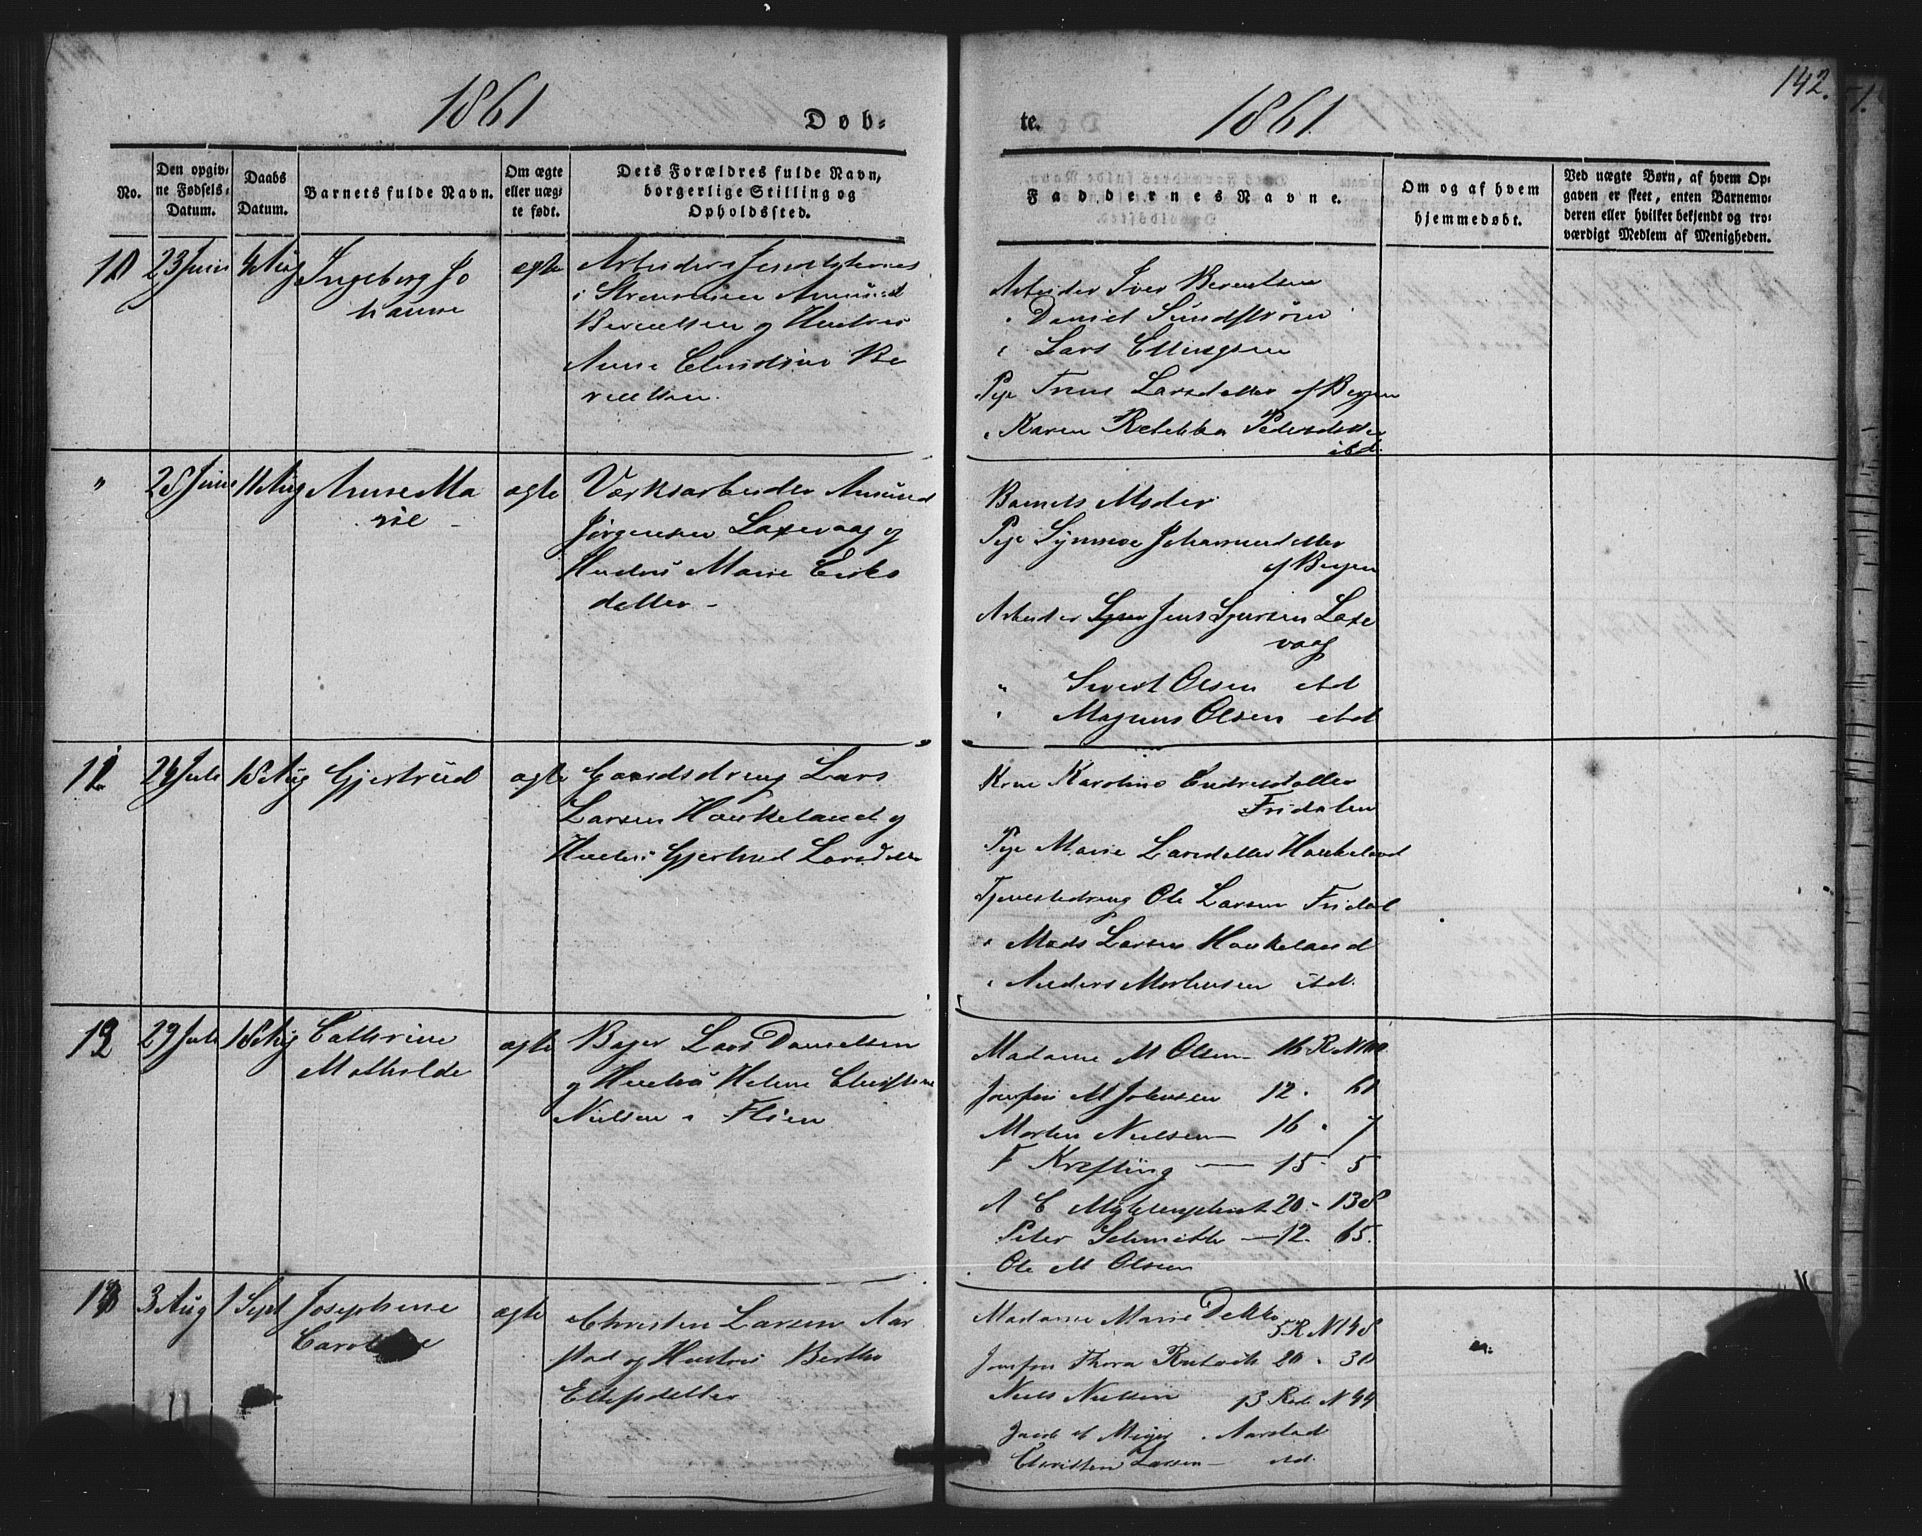 142.
1861
Døb-
te.
1861
No.
Den opgiv-
ne Fødsels-
Datum.
Daabs
Datum.
Barnets fulde Navn.
Om ægte
eller uæg-
te født.
Dets Forældres fulde Navn,
borgerlige Stilling og
Opholdssted.
Faddernes Navne.
Om og af hvem
hjemmedøbt.
Ved uægte Børn, af hvem Op-
gaven er skeet, enten Barnemo-
deren eller hvilket bekjendt og tro-
værdigt Medlem af Menigheden.
10
23 Juni
4 Aug
Ingeborg Jo
hanne
ægte
Arbeider
i Strømmen Amund
Berentsen og Hustru
Anne Christine Be
rentsen.
Arbeider Iver Berentsen
" Daniel Sundstrøm
" Lars Ellingsen
Pige Trine Larsdatter af Bergen
" Karen Rebekka Pedersdatter
ibd.
"
28 Juni
11 Aug
Anne Ma
rie -
ægte
Værksarbeider Amund
Jørgensen Laxevaag og
Hustru Marie Eriks
datter -
Barnets Moder
Pige Synneve Johannesdatter
af Bergen
Arbeider Jens Sjursen Laxe
vaag
" Sivert Olsen ibd
" Magnus Olsen ibd
11
24 Juli
18 Aug
Gjertrud
ægte
Gaardsdreng Lars
Larsen Haukeland og
Hustru Gjertrud Larsdatter
Kone Karoline Endresdatter
Fridalen
Pige Marie Larsdatter Haukeland
Tjenestedreng Ole Larsen Fridal
" Mads Larsen Haukeland
" Anders Mortensen ibd.
12
29 Juli
18 Aug
Cathrine
Mathilde
ægte
Bager Lars Danielsen
og Hustru Helene Christine
Nielsen i Fløen
Madame M Olsen 16 R N
Jomfru M Johnsen 12 . 60
Morten Nielsen - 16 . 7
F Krefting - 15 - 5
A C 20 - 138
Peter Schmidt - 12. 65.
Ole M Olsen
13
3 Aug
1 Sept
Josephine
Caroline
ægte
Christen Larsen Aar
stad og Hustru Berthe
Ellefsdatter
Madame Marie Dekke
5 R N 148
Jomfru Thora 20 . 30
Niels Nielsen 13 Rode N 44
Jacob Meyer . Aarstad
Christen Larsen - ibd.